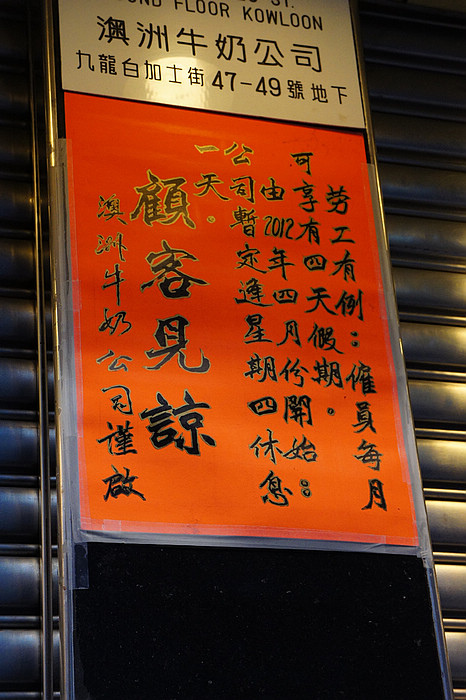 ST.
OUND FLOOR KOWLOON
澳洲牛奶公司
九龍白加士街47-49號地下
勞工有例：僱員每月
可享有四天假期。
由2012年四月份開始：
公司暫定逢星期四休息
一天。
顧客見諒
澳洲牛奶公司謹啟